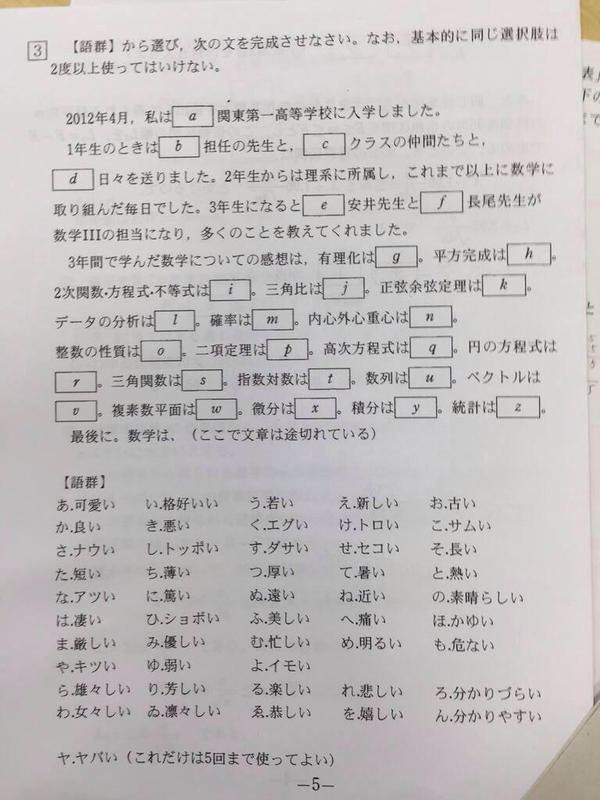 3 【語群】から選び，次の文を完成させなさい。なお，基本的に同じ選択肢は
2度以上使ってはいけない。
2012年4月，私は a 関東第一高等学校に入学しました。
1年生のときは b 担任の先生と， c クラスの仲間たちと，
d 日々を送りました。2年生からは理系に所属し，これまで以上に数学に
取り組んだ毎日でした。3年生になると e 安井先生と f 長尾先生が
数学IIIの担当になり，多くのことを教えてくれました。
3年間で学んだ数学についての感想は，有理化は g 。平方完成は h 。
2次関数·方程式·不等式は i 。三角比は j 。正弦余弦定理は k 。
データの分析は l 。確率は m 。内心外心重心は n 。
整数の性質は o 。二項定理は p 。高次方程式は q 。円の方程式は
r 。三角関数は s 。指数対数は t 。数列は u 。ベクトルは
v 。複素数平面は w 。微分は x 。積分は y 。統計は z 。
最後に。数学は、（ここで文章は途切れている）
【語群】
あ.可愛い い.格好いい う.若い え.新しい お.古い
か.良い き.悪い く.エグい け.トロい こ.サムい
さ.ナウい し.トッポい す.ダサい せ.セコい そ.長い
た.短い ち.薄い つ.厚い て.暑い と.熱い
な.アツい に.篤い ぬ.遠い ね.近い の.素晴らしい
は.凄い ひ.ショボい ふ.美しい へ.痛い ほ.かゆい
ま.厳しい み.優しい む.忙しい め.明るい も.危ない
や.キツい ゆ.弱い よ.イモい
ら.雄々しい り.芳しい る.楽しい れ.悲しい ろ.分かりづらい
わ.女々しい ゐ.凛々しい ゑ.恭しい を.嬉しい ん.分かりやすい
ヤ.ヤバい（これだけは5回まで使ってよい）
—5—